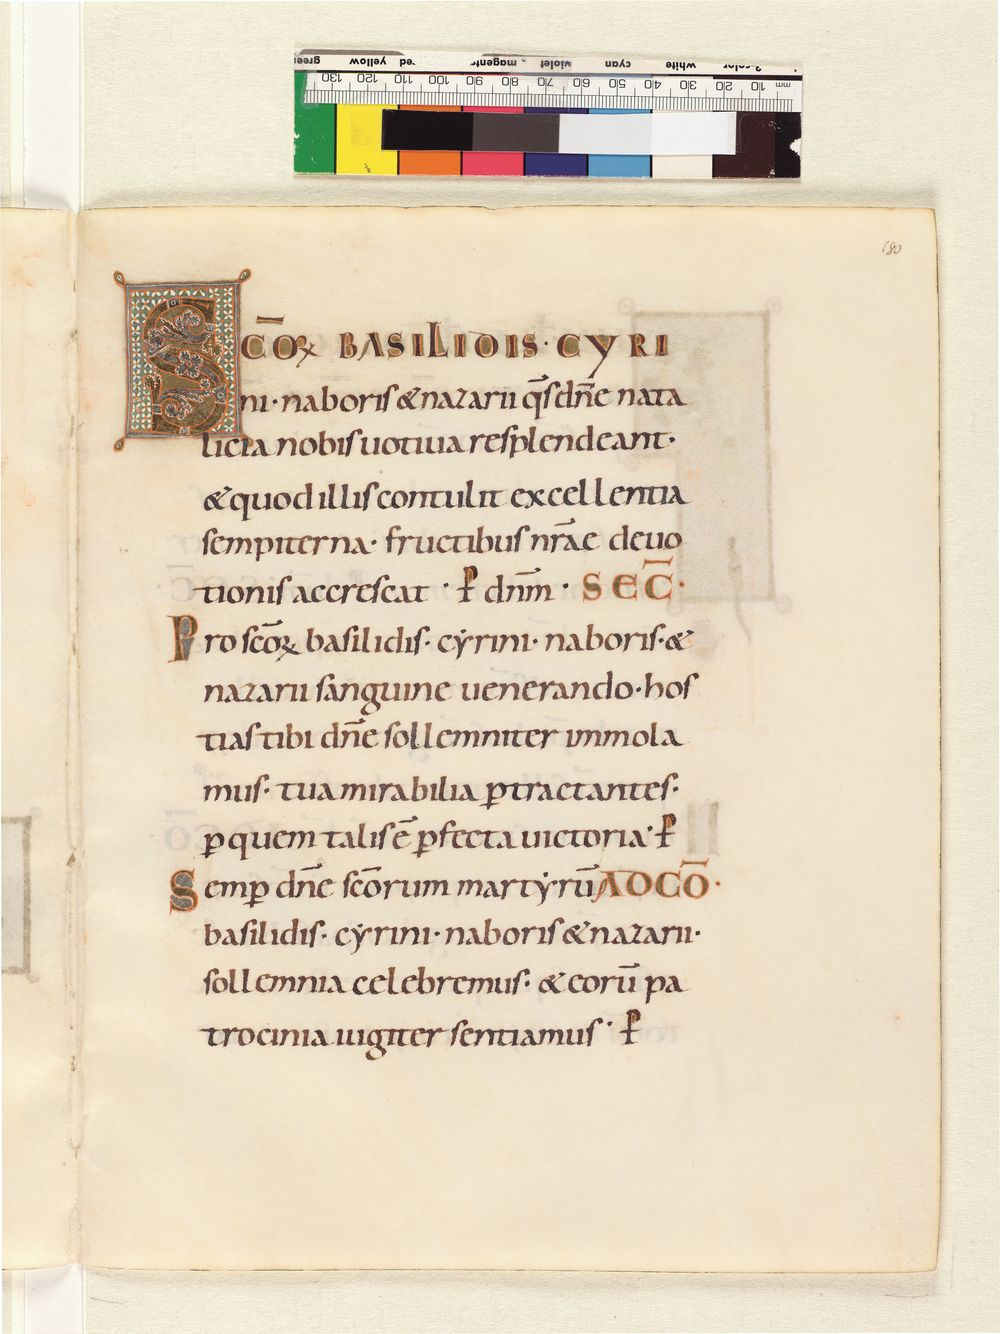 180
SCōꝝ BASILIDIS· CYRI
ni· naboris & nazarii q̄s dn̄e nata
licia nobis uotiua resplendeant·
& quod illis contulit excellentia
sempiterna· fructibus nr̄ae deuo
tionis accrescat · P̄ dn̄m · SEC̄·
Pro scōꝝ basilidis· cẏrini· naboris· &
nazarii sanguine uenerando· hos
tias tibi dn̄e sollemniter immola
mus· tua mirabilia ꝑtractantes·
ꝑ quem talis ē ꝑfecta uictoria· P̄
Semꝑ dn̄e scōrum martẏrū AD CŌ·
basilidis· cẏrini· naboris & nazarii·
sollemnia celebremus· & eorū pa
trocinia iugiter sentiamus· P̄